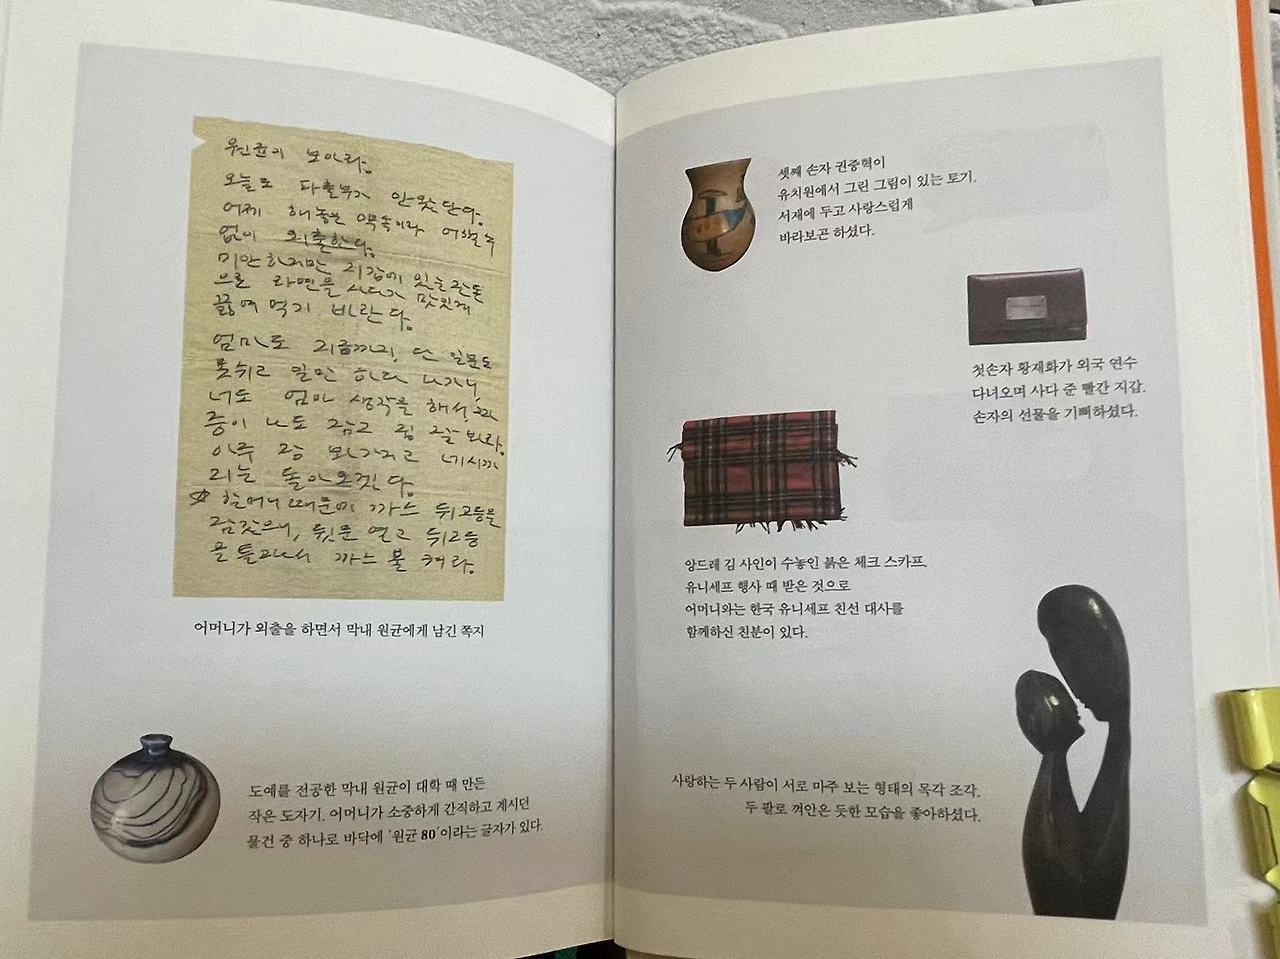 원균이 보아라.
오늘도 파출부가 안 왔단다.
어제 해놓은 약속이라 어쩔 수
없이 외출한다.
미안하지만 지갑에 있는 잔돈
으로 라면을 사다가 맛있게
끓여 먹기 바란다.
엄마도 지금까지, 단 일분도
못쉬고 일만 하다 나가니,
너도 엄마 생각을 해서,
중이 나도 참고 집 잘 봐라.
아주 잠 봐가지고 네시까
지는 돌아오겠다.
할머니 때문에 까스 뒤 고등을
잠갔으니, 뒷문 열고 뒤고등
을 틀고나서 까스 불 켜라.
어머니가 외출을 하면서 막내 원균에게 남긴 쪽지
도예를 전공한 막내 원균이 대학 때 만든
작은 도자기. 어머니가 소중하게 간직하고 계시던
물건 중 하나로 바닥에 '원균 80'이라는 글자가 있다.
셋째 손자 권중혁이
유치원에서 그린 그림이 있는 토기.
서재에 두고 사랑스럽게
바라보곤 하셨다.
첫손자 황재화가 외국 연수
다녀오며 사다 준 빨간 지갑.
손자의 선물을 기뻐하셨다.
앙드레 김 사인이 수놓인 붉은 체크 스카프.
유니세프 행사 때 받은 것으로
어머니와는 한국 유니세프 친선 대사를
함께하신 친분이 있다.
사랑하는 두 사람이 서로 마주 보는 형태의 목각 조각.
두 팔로 껴안은 듯한 모습을 좋아하셨다.